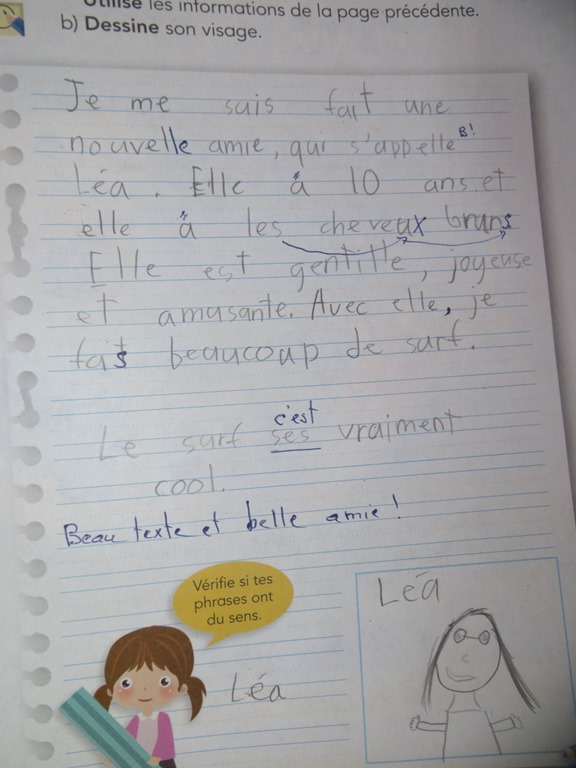 Utilise les informations de la page précédente.
b) Dessine son visage.
Je me suis fait une
nouvelle amie, qui s'appelle B!
Léa. Elle à 10 ans et
elle à les cheveux bruns
Elle est gentille, joyeuse
et amusante. Avec elle, je
fais beaucoup de surf.
c'est
Le surf ses vraiment
cool.
Beau texte et belle amie !
Vérifie si tes
phrases ont
du sens.
Léa
Léa